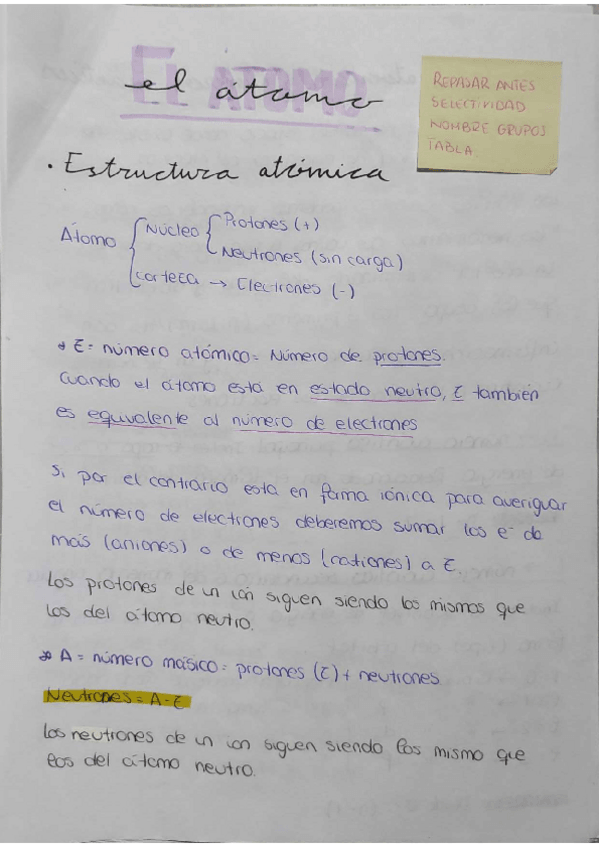 EL ATOMO
el átomo
REPASAR ANTES
SELECTIVIDAD
NOMBRE GRUPOS
TABLA.
· Estructura atómica
Átomo
Núcleo
Protones (+)
Neutrones (sin carga)
corteza → Electrones (-)
* Z = número atómico = Número de protones.
Cuando el átomo está en estado neutro, Z también
es equivalente al número de electrones
Si por el contrario esta en forma iónica para averiguar
el número de electrones deberemos sumar los e⁻ de
más (aniones) o de menos (cationes) a Z.
Los protones de un ion siguen siendo los mismos que
los del átomo neutro.
* A = número másico = protones (Z) + neutrones
Neutrones = A - Z
Los neutrones de un ion siguen siendo los mismo que
los del átomo neutro.